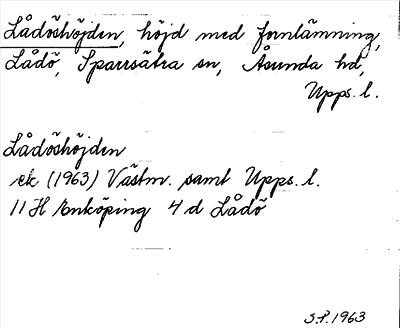 Lådöshöjden, höjd med fornlämning,
Lådö, Sparrsätra sn, Åsunda hd,
Upps. l.
Lådöshöjden
ek (1963) Västm. samt Upps. l.
11 H Enköping 4 d Lådö
S.P. 1963